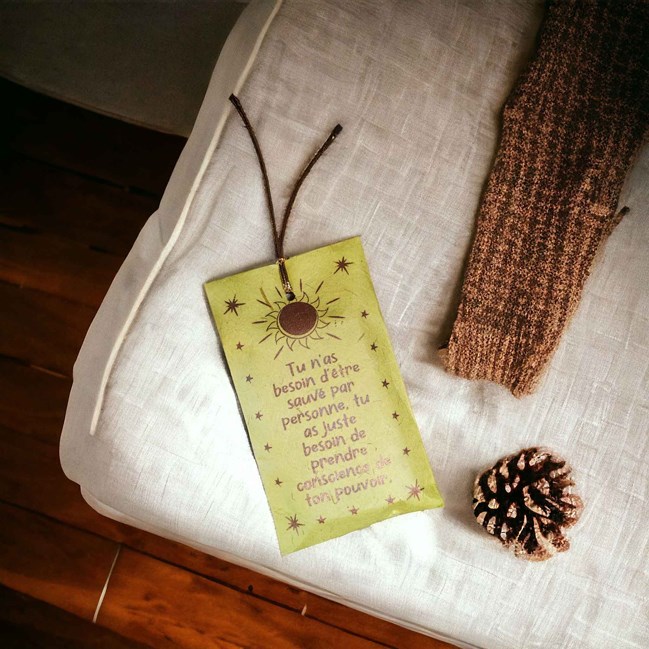 Tu n'as
besoin d'être
sauvé par
personne, tu
as juste
besoin de
prendre
conscience de
ton pouvoir.